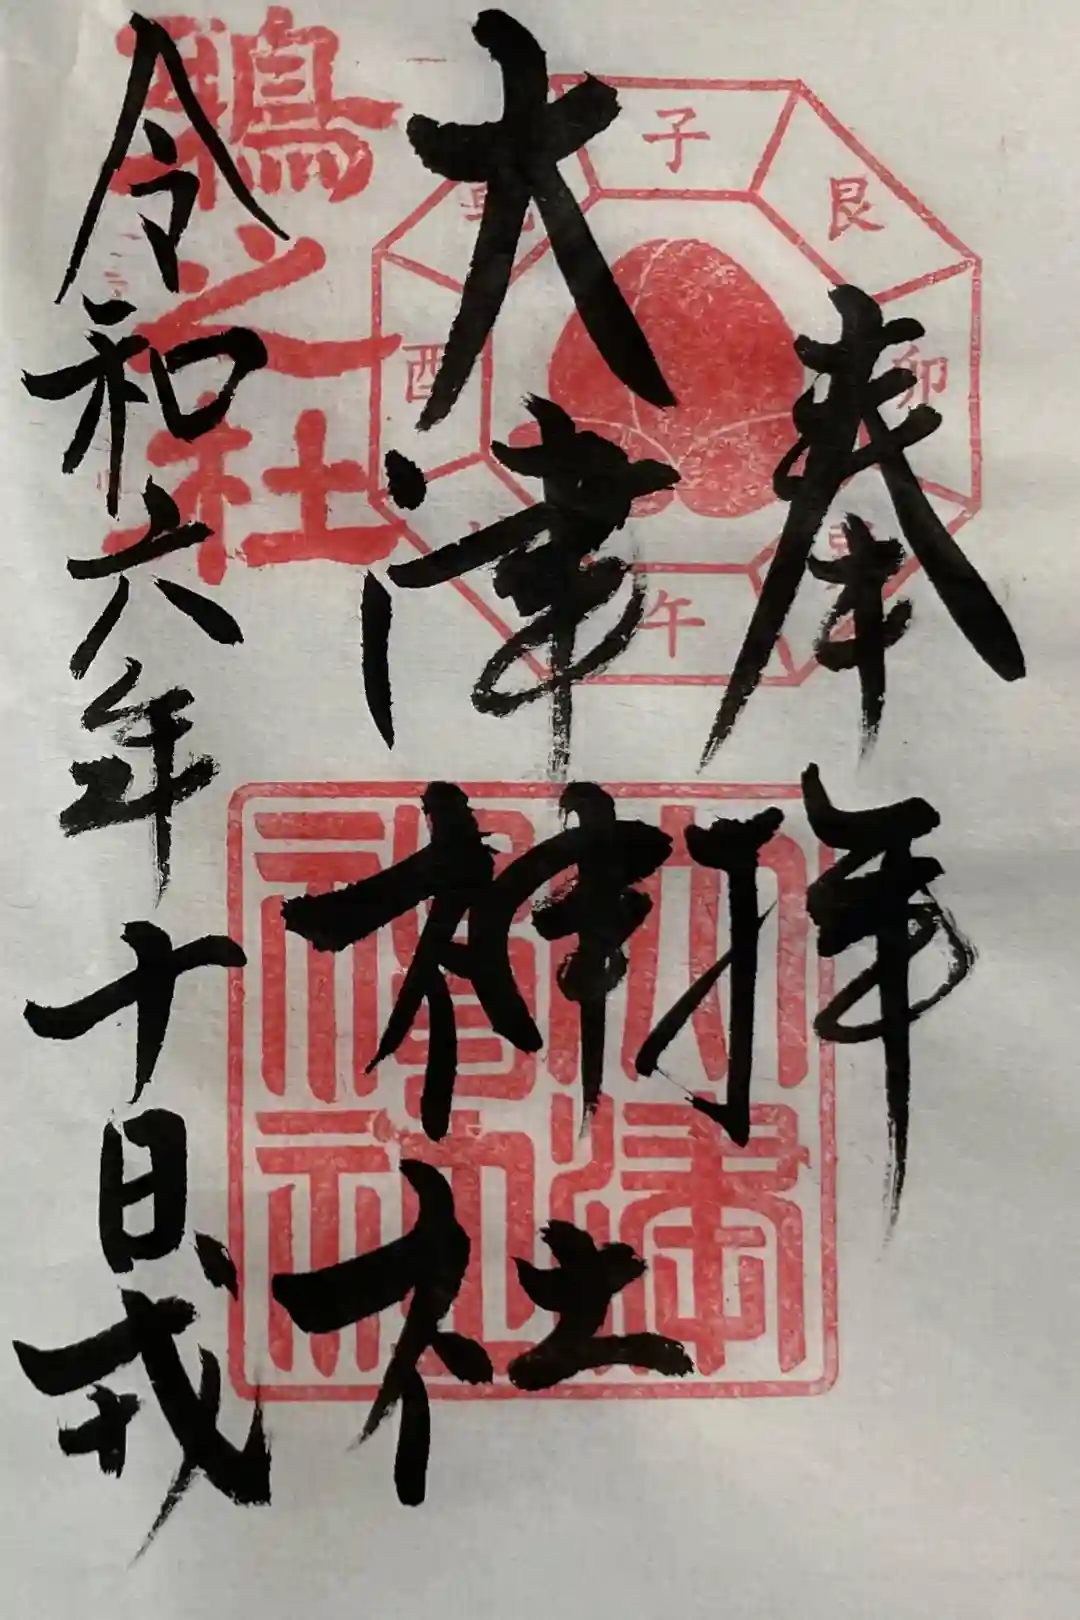 奉拝
大津神社
令和六年十日戎
之社
子
艮
卯
午
酉
大津
神社